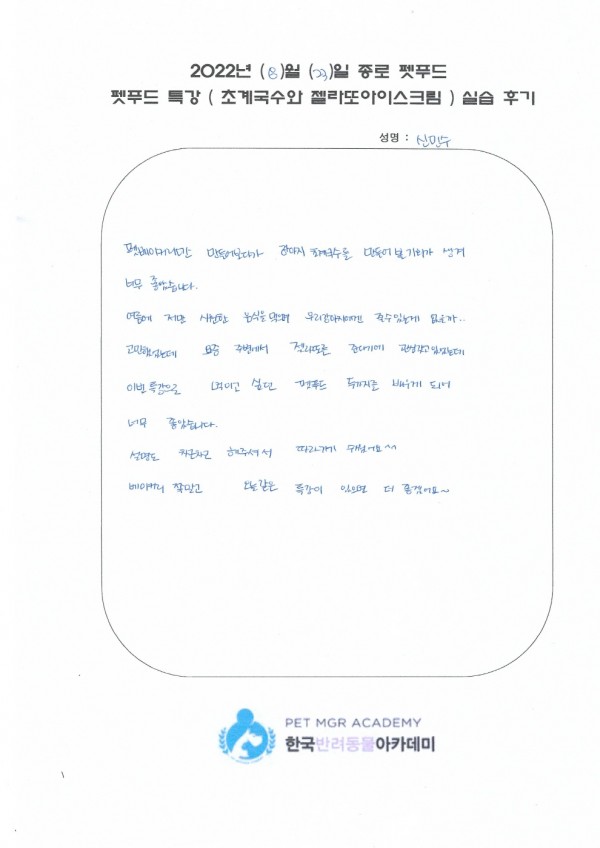 2022년 (8)월 (23)일 종로 펫푸드
펫푸드 특강 ( 초계국수와 젤라또아이스크림 ) 실습 후기
성명 : 신민수
펫베이커리만 만들어보다가 강아지 초계국수를 만들어 볼 기회가 생겨
너무 좋았습니다.
여름에 저만 시원한 음식을 먹으며 우리강아지에게도 줄수있는게 없을까..
고민했었는데 요즘 주변에서 젤라또를 준다기에 관심갖고있었는데
이번 특강으로 먹이고 싶던 펫푸드 두가지를 배우게 되어
너무 좋았습니다.
설명도 차근차근 해주셔서 따라가기 쉬웠어요^^
베이커리 말고 오늘같은 특강이 있으면 더 좋겠어요~
PET MGR ACADEMY
한국반려동물아카데미